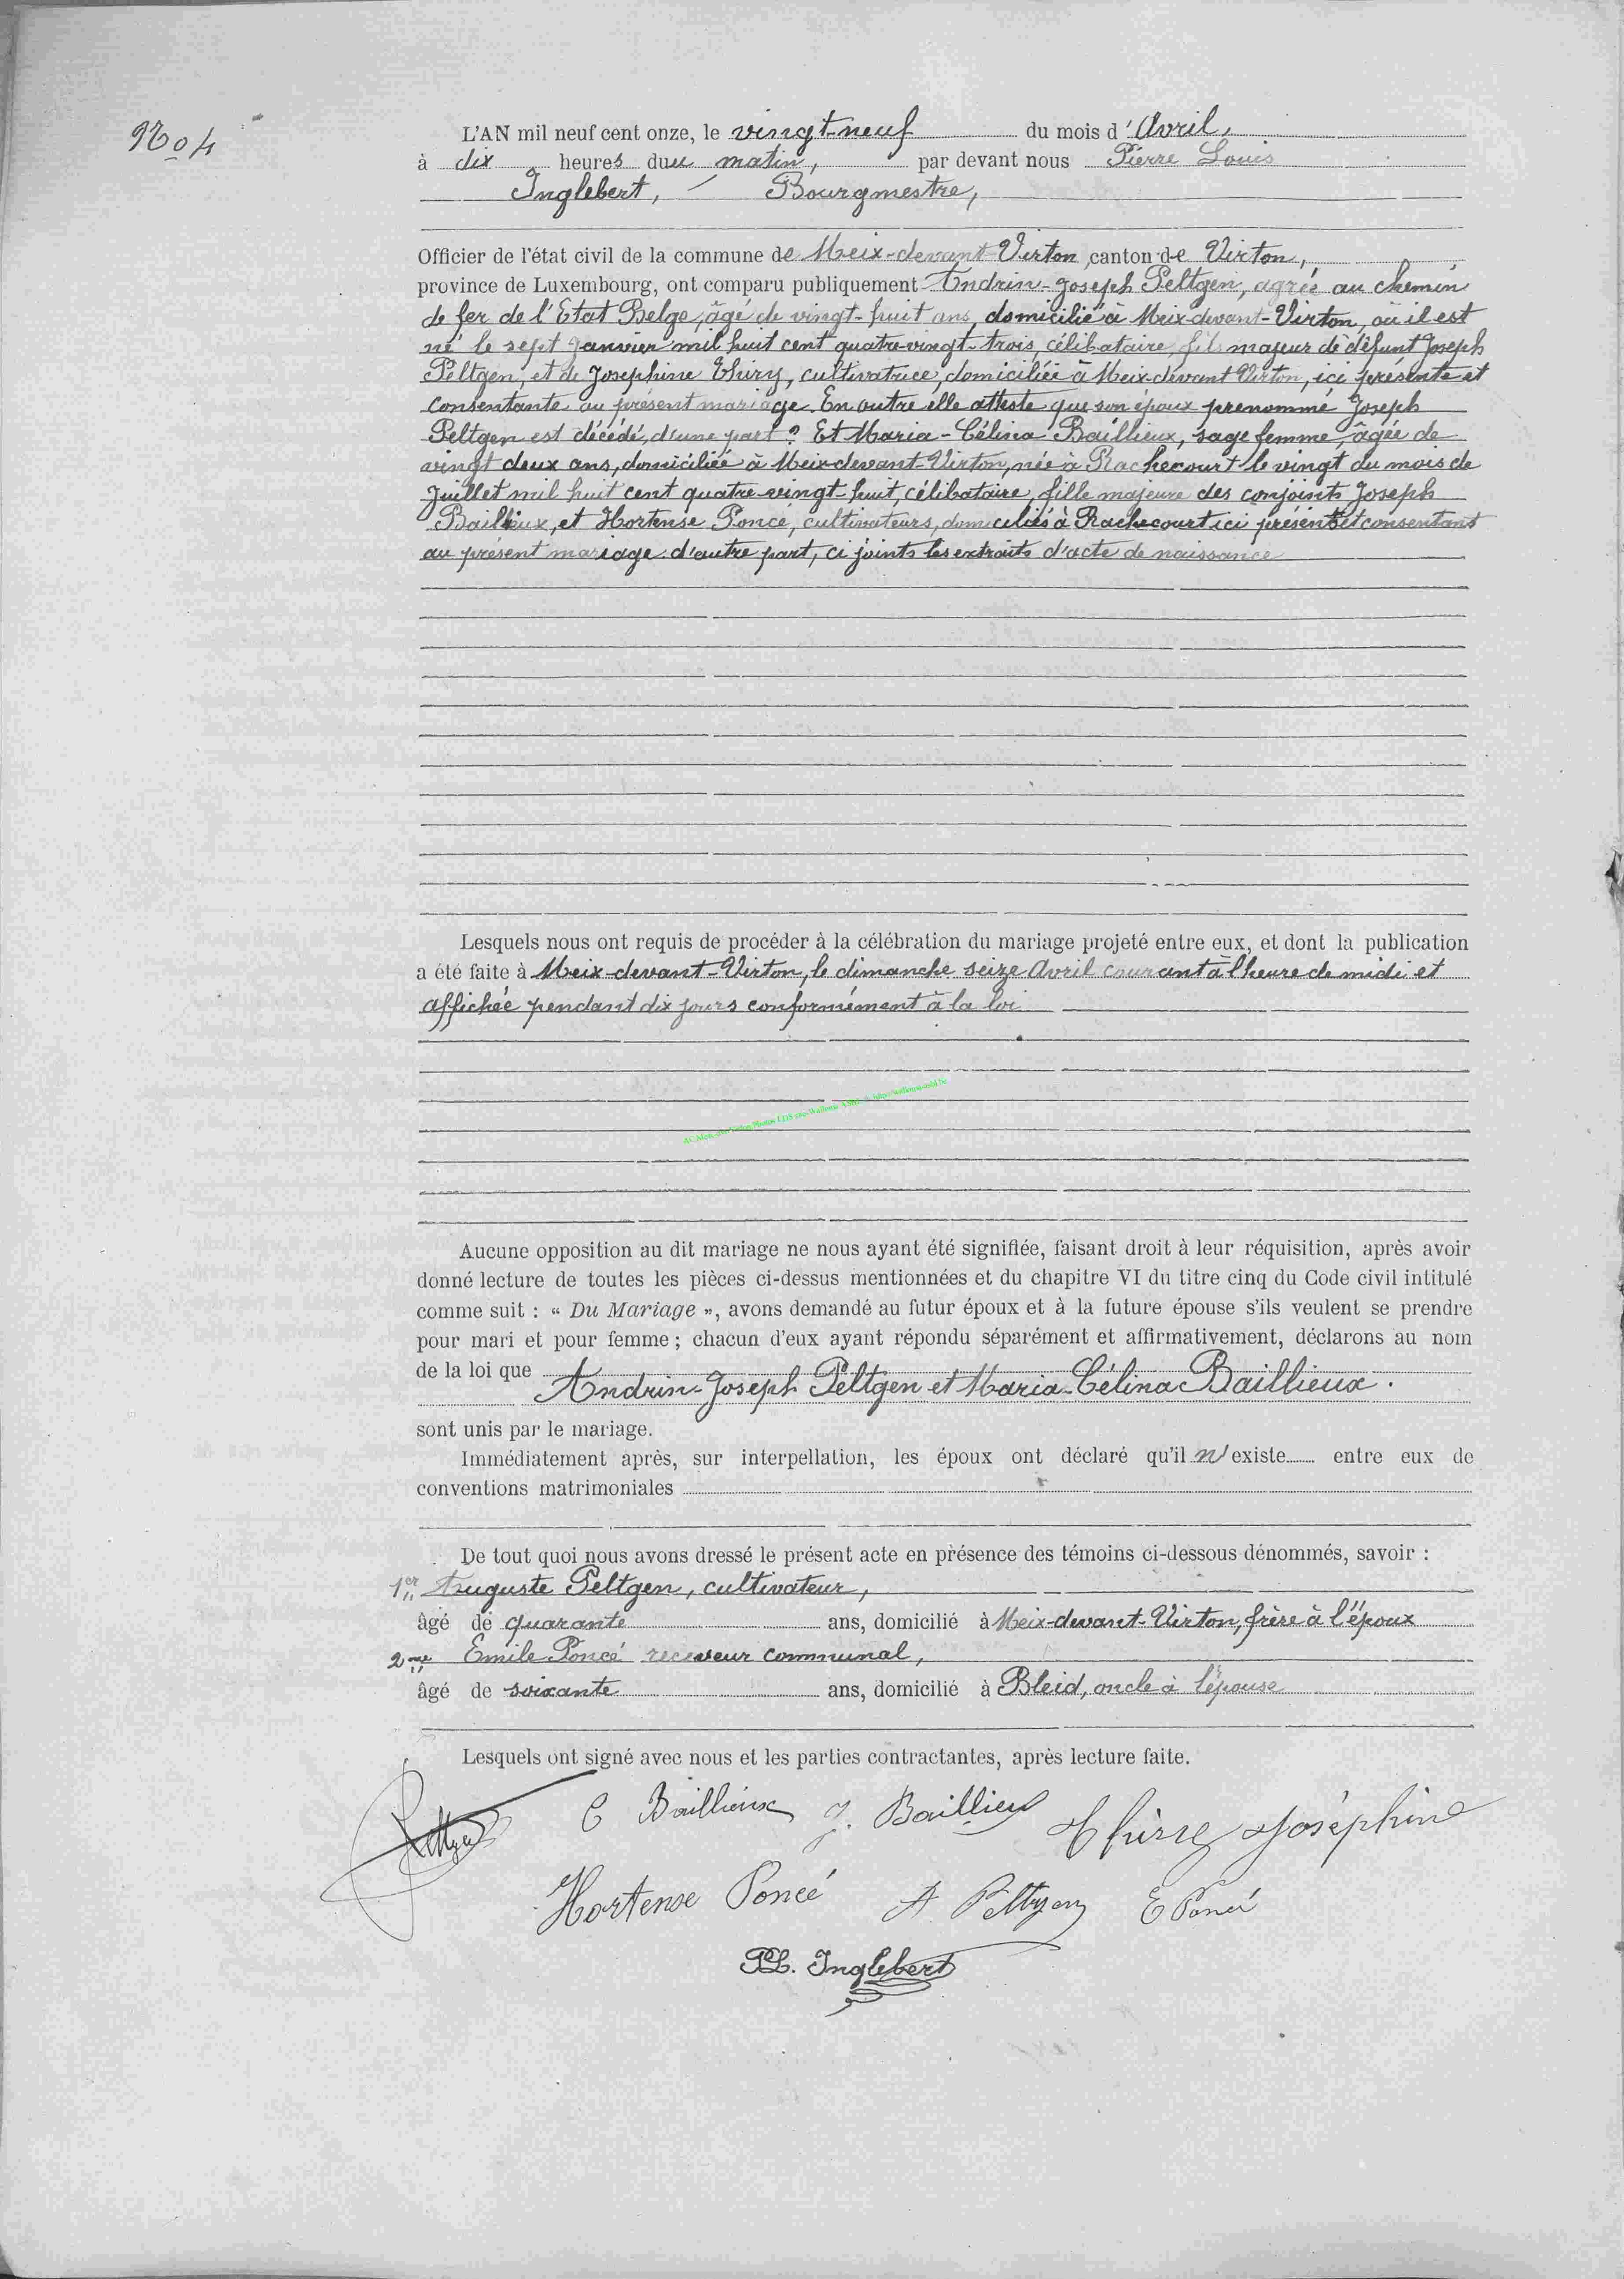 No 4
L'AN mil neuf cent onze, le vingt-neuf du mois d'Avril,
à dix heures du matin, par devant nous Pierre Louis
Inglebert, Bourgmestre,
Officier de l'état civil de la commune de Meix-devant-Virton, canton de Virton,
province de Luxembourg, ont comparu publiquement Andrin-Joseph Peltgen, agréé au chemin
de fer de l'Etat Belge, âgé de vingt-huit ans, domicilié à Meix-devant-Virton, où il est
né le sept Janvier mil huit cent quatre-vingt-trois, célibataire, fils majeur de défunt Joseph
Peltgen, et de Josephine Thiry, cultivatrice, domiciliée à Meix-devant Virton, ici présente et
consentante au présent mariage. En outre elle atteste que son époux prénommé Joseph
Peltgen est décédé, d'une part? Et Maria-Célina Baillieux, sage femme, âgée de
vingt deux ans, domiciliée à Meix-devant-Virton, née à Rachecourt le vingt du mois de
Juillet mil huit cent quatre-vingt-huit, célibataire, fille majeure des conjoints Joseph
Baillieux, et Hortense Poncé, cultivateurs, domiciliés à Rachecourt ici présents et consentants
au présent mariage. d'autre part, ci joints les extraits d'acte de naissance
Lesquels nous ont requis de procéder à la célébration du mariage projeté entre eux, et dont la publication
a été faite à Meix-devant-Virton, le dimanche seize Avril courant à l'heure de midi et
affichée pendant dix jours conformément à la loi
Aucune opposition au dit mariage ne nous ayant été signifiée, faisant droit à leur réquisition, après avoir
donné lecture de toutes les pièces ci-dessus mentionnées et du chapitre VI du titre cinq du Code civil intitulé
comme suit : « Du Mariage », avons demandé au futur époux et à la future épouse s'ils veulent se prendre
pour mari et pour femme ; chacun d'eux ayant répondu séparément et affirmativement, déclarons au nom
de la loi que Andrin-Joseph Peltgen et Maria-Célina Baillieux.
sont unis par le mariage.
Immédiatement après, sur interpellation, les époux ont déclaré qu'il n'existe entre eux de
conventions matrimoniales
De tout quoi nous avons dressé le présent acte en présence des témoins ci-dessous dénommés, savoir :
1er Auguste Peltgen, cultivateur,
âgé de quarante ans, domicilié à Meix-devant-Virton, frère à l'époux
2me Emile Poncé receveur communal,
âgé de soixante ans, domicilié à Bleid, oncle à l'épouse
Lesquels ont signé avec nous et les parties contractantes, après lecture faite.
Peltgen C Baillieux J. Baillieux Thirre Joséphine
Hortense Poncé A Peltgen E Poncé
PL. Inglebert